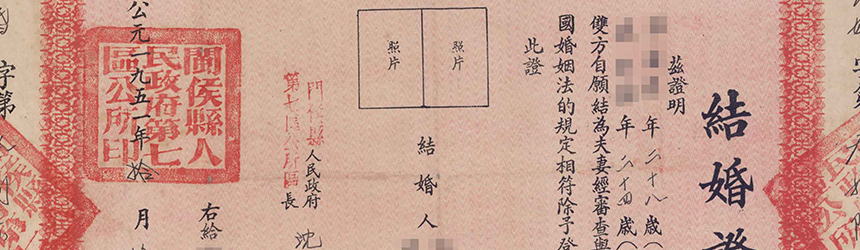 結婚證
茲證明
年二十八歲
年二十四歲
雙方自願結為夫妻經審查與
國婚姻法的規定相符除予登
此證
照片
照片
結婚人
人民政府
區長
沈
右給
閩侯縣人
民政府第七
區公所印
公元一九五一年拾月
字第